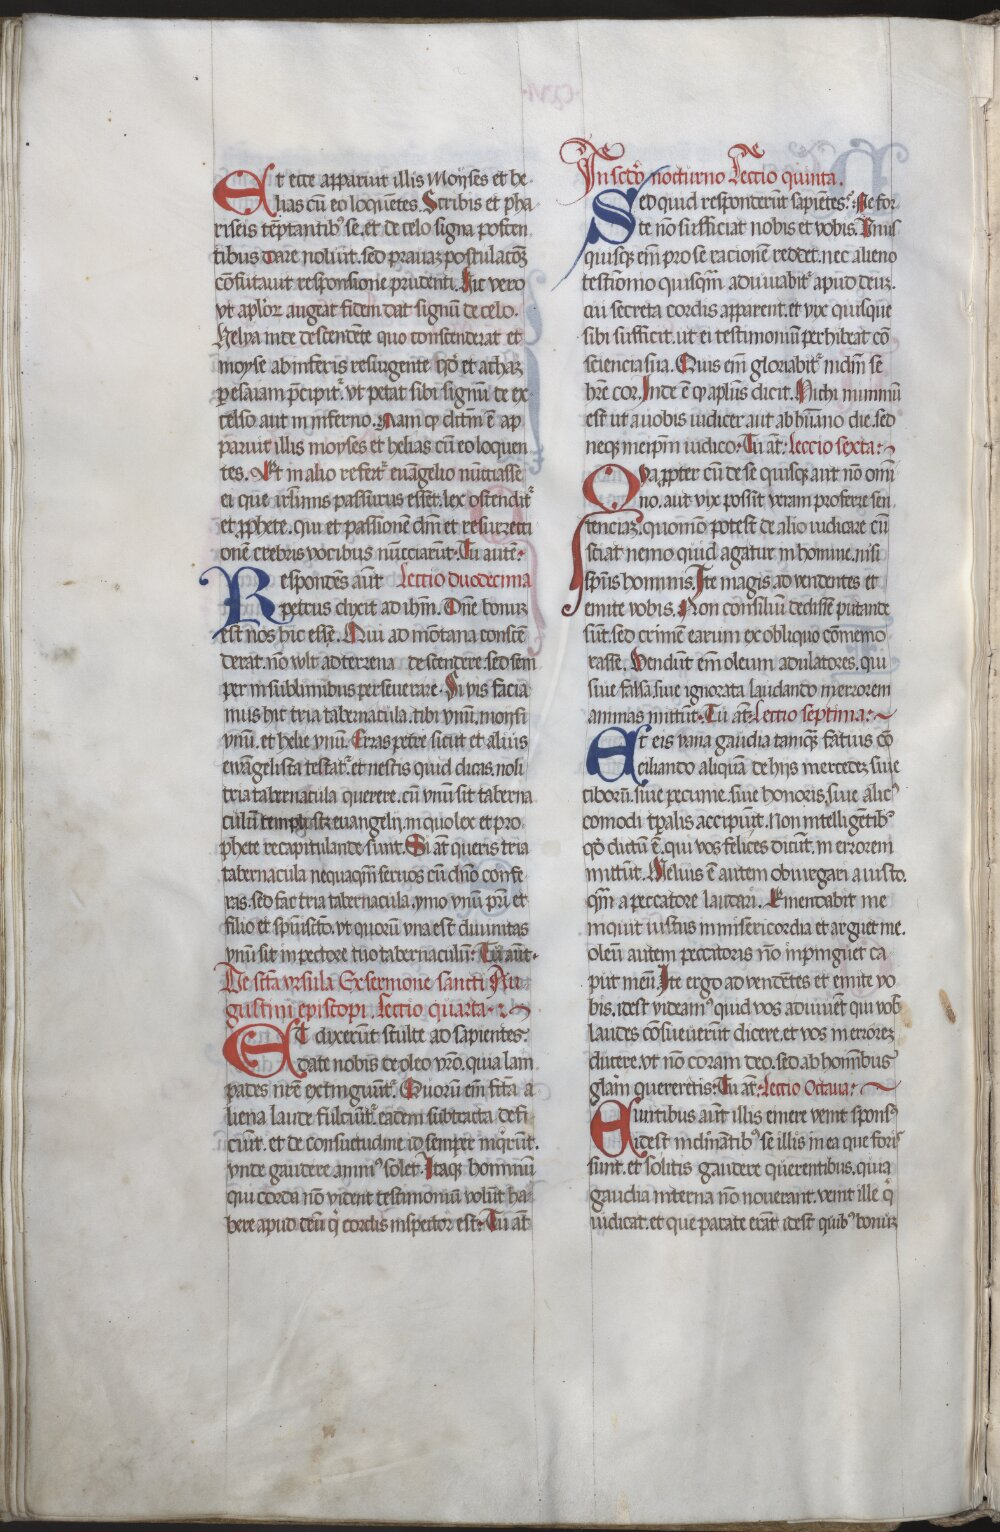 Et ecce apparuit illis Moyses et he
lias cū eo loquētes. Scribis et pha
riseis tēptantibꝰ se. et de celo signa poscen
tibus dare noluit. sed prauaꝫ postulacōꝫ
cōfutauit responsione prudenti. hic vero
vt aplōr augeat fidem dat signū de celo.
Helya inde descendēte quo conscenderat et
moyse ab inferis resurgente qd̄ et achaz
ꝑ esaiam p̄cipit᷑ vt petat sibi signū de ex
celso aut in inferno. Nam qꝫ dictū ē ap
paruit illis moyses et helias cū eo loquen
tes. Et in alio refert᷑ euāgelio nūtiasse
ei que ihrlimis passurus esset. lex ostendit᷑
et ꝓphete. qui et passionē dnī et resurrecti
onē crebris vocibus nūcciarūt. Tu autē
Respondēs aūt Lectio duodecima
petrus dixit ad ihm̄. Dn̄e bonuꝫ
est nos hic esse. Qui ad mōtana conscē
derat. nō vult ad terrena descendere. sed sem
per in sublimibus perseuerare. Si vis facia
mus hic tria tabernacula. tibi vnū. moysi
vnū. et helie vnū. Erras petre sicut et alius
ewāgelista testat᷑. et nescis quid dicas. noli
tria tabernacula querere. cū vnū sit taberna
culū templū sꝫ euangelij. in quo lex et pro
phete recapitulande sunt. Si āt queris tria
tabernacula nequaqm̄ seruos cū dn̄o confe
ras. sed fac tria tabernacula. ymo vnū pr̄i et
filio et sp̄uisct̄o. vt quorū vna est diuinitas
vnū sit in pectore tuo tabernaculū. Tu aūt
De sct̄a vrsula Ex sermone sancti Au
gustini episcopi. Lectio quarta.
Et dixerūt stulte ad sapientes.
date nobis de oleo vr̄o. quia lam
pades nr̄e extinguūt᷑. Quorū em̄ fct̄a a
liena laude fulciūt᷑. eadem subtracta defi
ciūt. et de consuetudine id semper inq̄rūt.
vnde gaudere animꝰ solet. Itaqꝫ hominū
qui corda nō vident testimoniū volūt ha
bere apud deū q̄ cordis inspector est. Tu āt
In sctō nocturno Lectio quinta.
Sed quid responderūt sapiētes. Ne for
te nō sufficiat nobis et vobis. Vnus
quisqꝫ em̄ pro se racionē reddet. nec alieno
testīonio quisqm̄ adiuuabit᷑ apud deuꝫ.
cui secreta cordis apparent. et vix quisque
sibi sufficit. ut ei testimoniū perhibeat cō
sciencia sua. Quis em̄ gloriabit᷑ md̄m se
hr̄e cor. Inde ē qꝫ apl̄us dicit. Michi minimū
est ut a uobis iudicer aut ab hūano die. sed
neqꝫ meip̄m iudico. Tu āt. Leccio sexta.
Qua ꝓpter cū de se quisqꝫ aut nō omī
no. aut vix possit veram proferre sen
tenciaꝫ. quomō potest de alio iudicare cū
sciat nemo quid agatur in homine. nisi
sp̄us hominis. Ite magis ad vendentes et
emite vobis. Non consiliū dedisse putande
sūt. sed crimē earum ex obliquo cōmemo
rasse. Vendūt em̄ oleum adulatores. qui
siue falsa siue ignorata laudando in errorem
animas mittūt. Tu āt. Lectio septima.
Et eis vana gaudia tamqꝫ fatuis cō
ciliando aliquā de hijs mercedeꝫ siue
ciborū. siue pecunie. siue honoris. siue alicꝰ
comodi tp̄alis accipiūt. Non intelligētibꝰ
qd̄ dictū ē. qui vos felices dicūt. in errorem
mittūt. Melius ē autem obiurgari a iusto.
qm̄ a peccatore laudari. Emendabit me
inquit iustus in misericordia et arguet me.
oleū autem peccatoris nō inpinguet ca
put meū. Ite ergo ad vendētes et emite vo
bis. idest videamꝰ quid vos adiuuēt qui vob̄
laudes cōsueuerūt dicere. et vos in erroreꝫ
ducere. vt nō coram deo. sed ab hominibus
glām quereretis. Tu āt. Lectio Octaua.
Euntibus aūt illis emere venit sponsꝰ
idest inclinātibꝰ se illis in ea que foris
sunt. et solitis gaudere querentibus. quia
gaudia interna nō nouerant. venit ille q̄
iudicat. et que parate erāt idest quibꝰ bonuꝫ